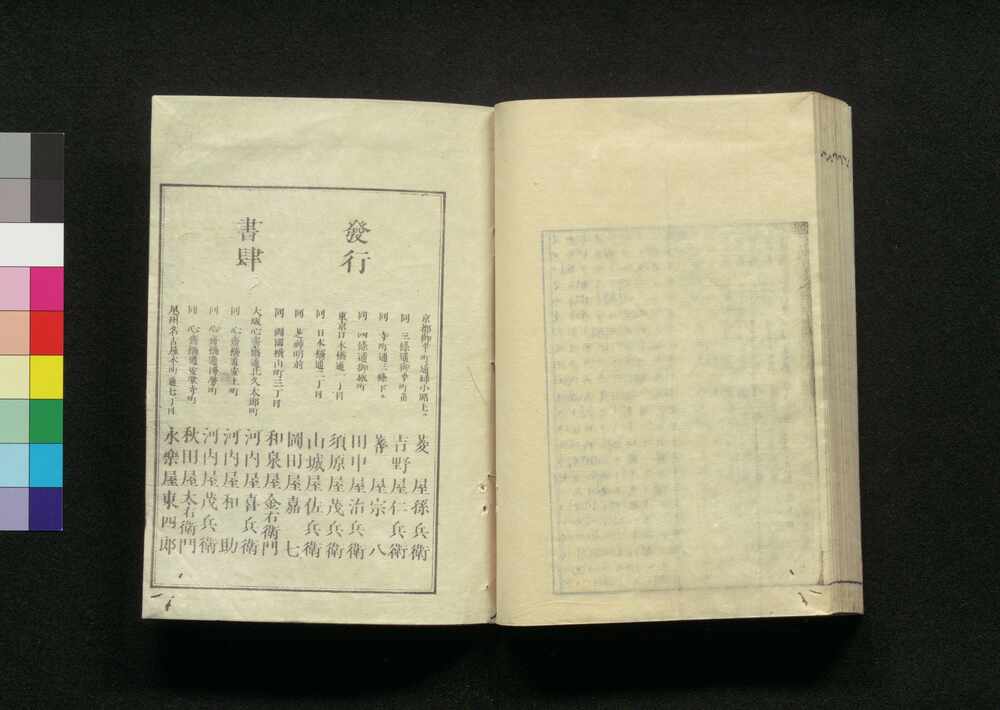 發行
書肆
京都御幸町通姉小路上ル 菱屋孫兵衛
同 三條通御幸町角 吉野屋仁兵衛
同 寺町通三條下ル 屋宗八
同 四條通御旅町 田中屋治兵衛
東京日本橋通一丁目 須原屋茂兵衛
同 日本橋通二丁目 山城屋佐兵衛
同 芝神明前 岡田屋嘉七
同 兩國橫山町三丁目 和泉屋金右衛門
大阪心齋橋通北久太郎町 河内屋喜兵衛
同 心齋橋通安土町 河内屋和助
同 心齋橋通博勞町 河内屋茂兵衛
同 心齋橋通安堂寺町 秋田屋太右衛門
尾州名古屋本町通七丁目 永樂屋東四郎